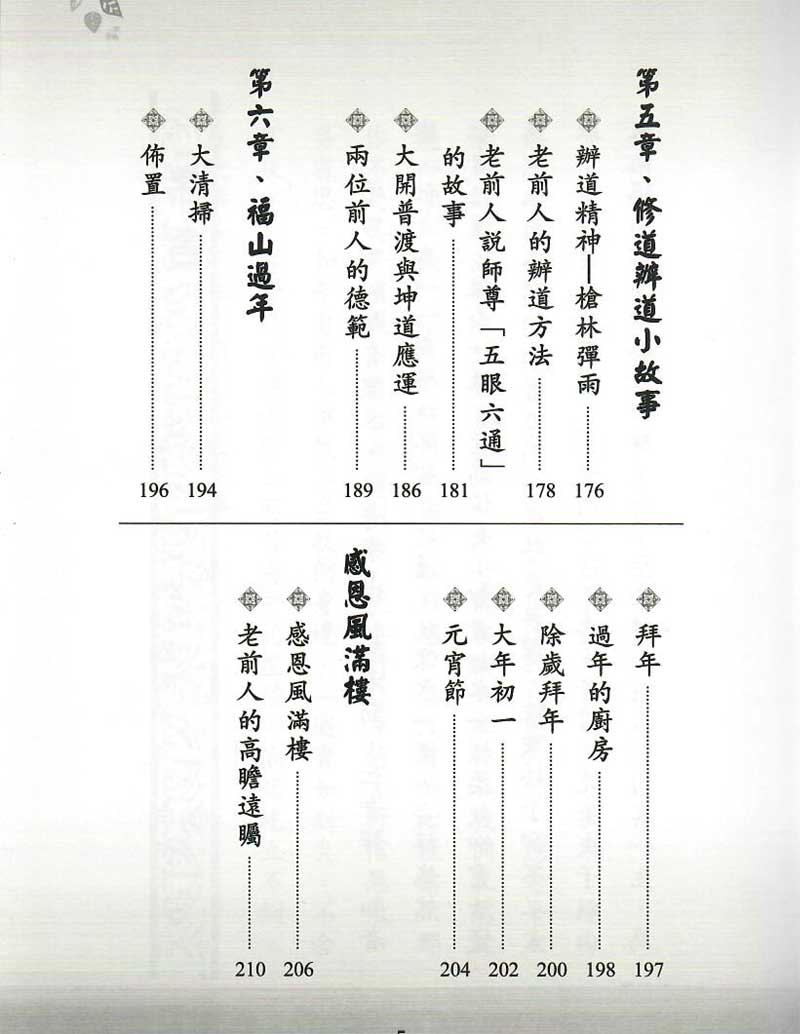 第五章、修道辦道小故事
辦道精神—槍林彈雨 176
老前人的辦道方法 178
老前人說師尊「五眼六通」
的故事 181
大開普渡與坤道應運 186
兩位前人的德範 189
第六章、福山過年
大清掃 194
佈置 196
拜年 197
過年的廚房 198
除歲拜年 200
大年初一 202
元宵節 204
感恩風滿樓
感恩風滿樓 206
老前人的高瞻遠矚 210